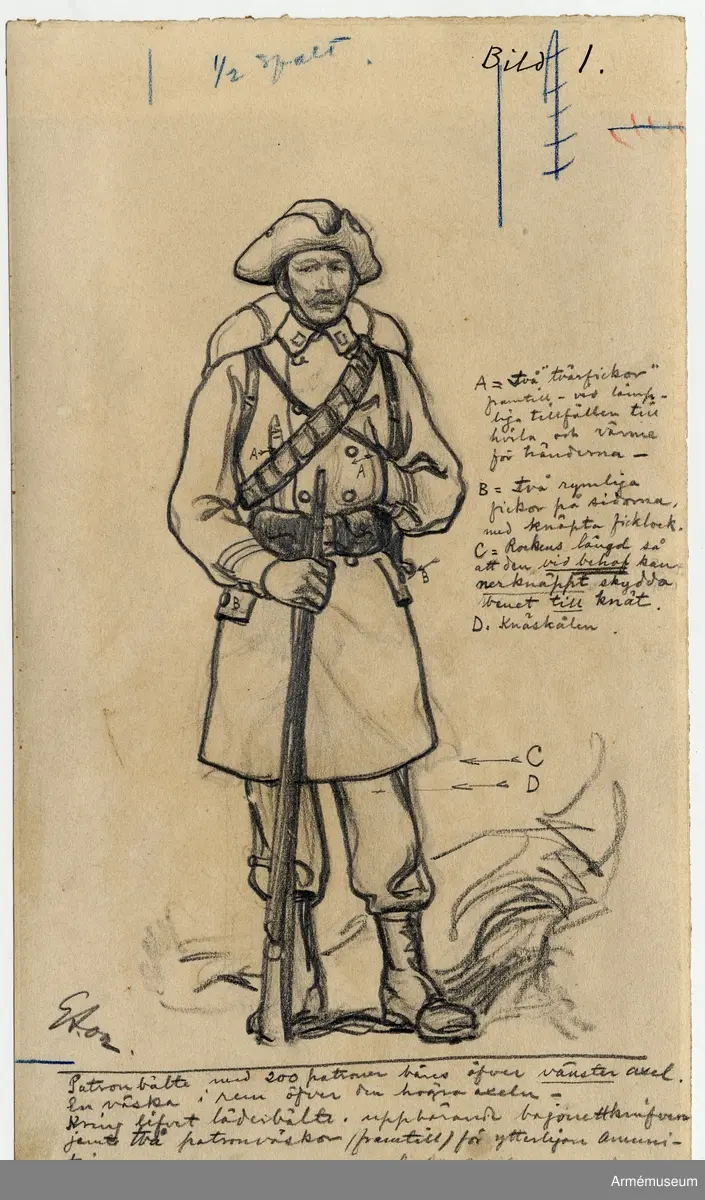 1/2 spalt.
Bild 1.
A = Två "tvärfickor"
framtill - vid lämp-
liga tillfällen till
hvila och värme
för händerna -
B = Två rymliga
fickor på sidorna,
med knäpta ficklock.
C = Rockens längd så
att den vid behof kan
nerknäppt skydda
benet till knät.
D. Knäskålen.
A
A
B
B
C
D
Patronbälte med 200 patroner bäres öfver vänster axel.
En väska i rem öfver den högra axeln -
Kring lifvet läderbälte, uppbärande bajonettknifven
jemte två patronväskor /framtill/ för ytterligare ammuni-
Armémuseum